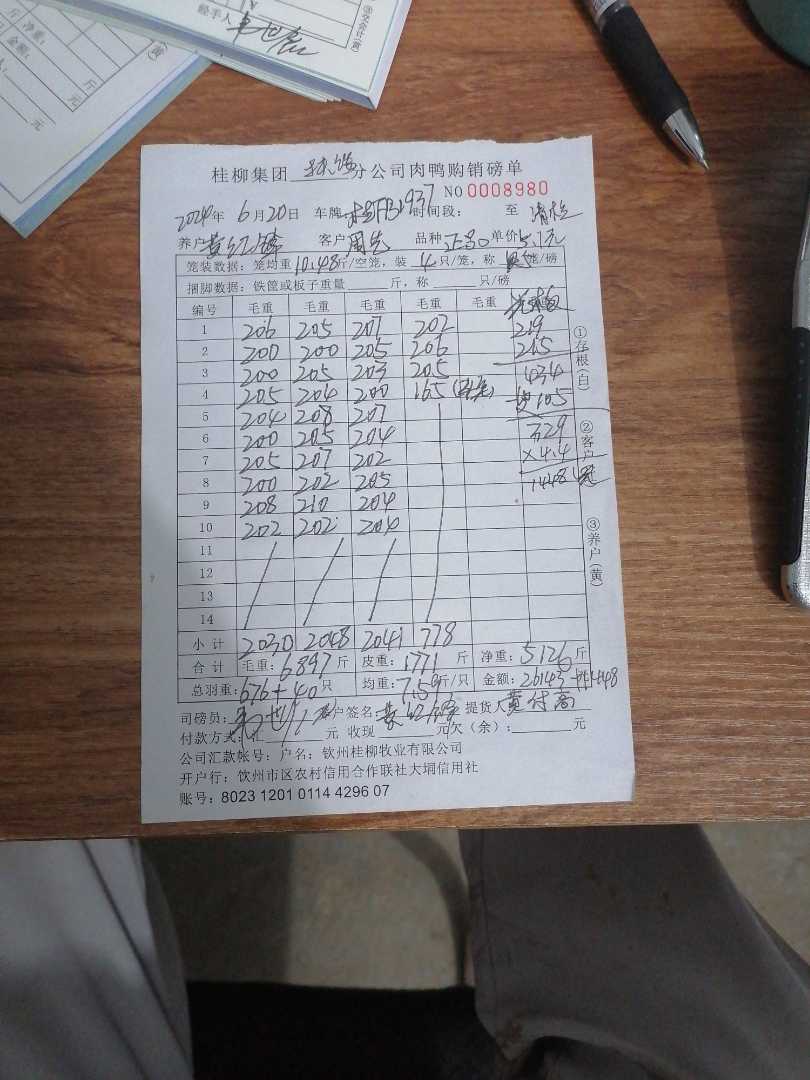 ③交会计(黄)
经手人
净重:
斤
金额:
元
元
桂柳集团 分公司肉鸭购销磅单
NO 0008980
2024年 6月20日 车牌 FB1937 时间段: 至
养户 黄红 客户 周先 品种 正品 单价 5.1元
笼装数据:笼均重 10.48斤/空笼,装 4 只/笼,称 笼/磅
捆脚数据:铁筐或板子重量 斤,称 只/磅
编号 毛重 毛重 毛重 毛重 毛重
1 206 205 207 202 219
2 200 200 205 206 215
3 200 205 203 205 434
4 205 204 200 165 105
5 204 208 207 329
6 200 205 204 ×4.4
7 205 207 202 1448
8 200 202 205
9 208 210 204
10 202 202 204
11
12
13
14
小计 2030 2048 2041 778
合计 毛重:6897斤 皮重:1771斤 净重:5126斤
总羽重:676+40只 均重:7.59斤/只 金额:26143+1448
司磅员: 客户签名: 提货人 黄付高
付款方式:汇 元 收现 元欠(余): 元
公司汇款帐号:户名:钦州桂柳牧业有限公司
开户行:钦州市区农村信用合作联社大垌信用社
账号:8023 1201 0114 4296 07
①存根(白)
②客户
③养户(黄)